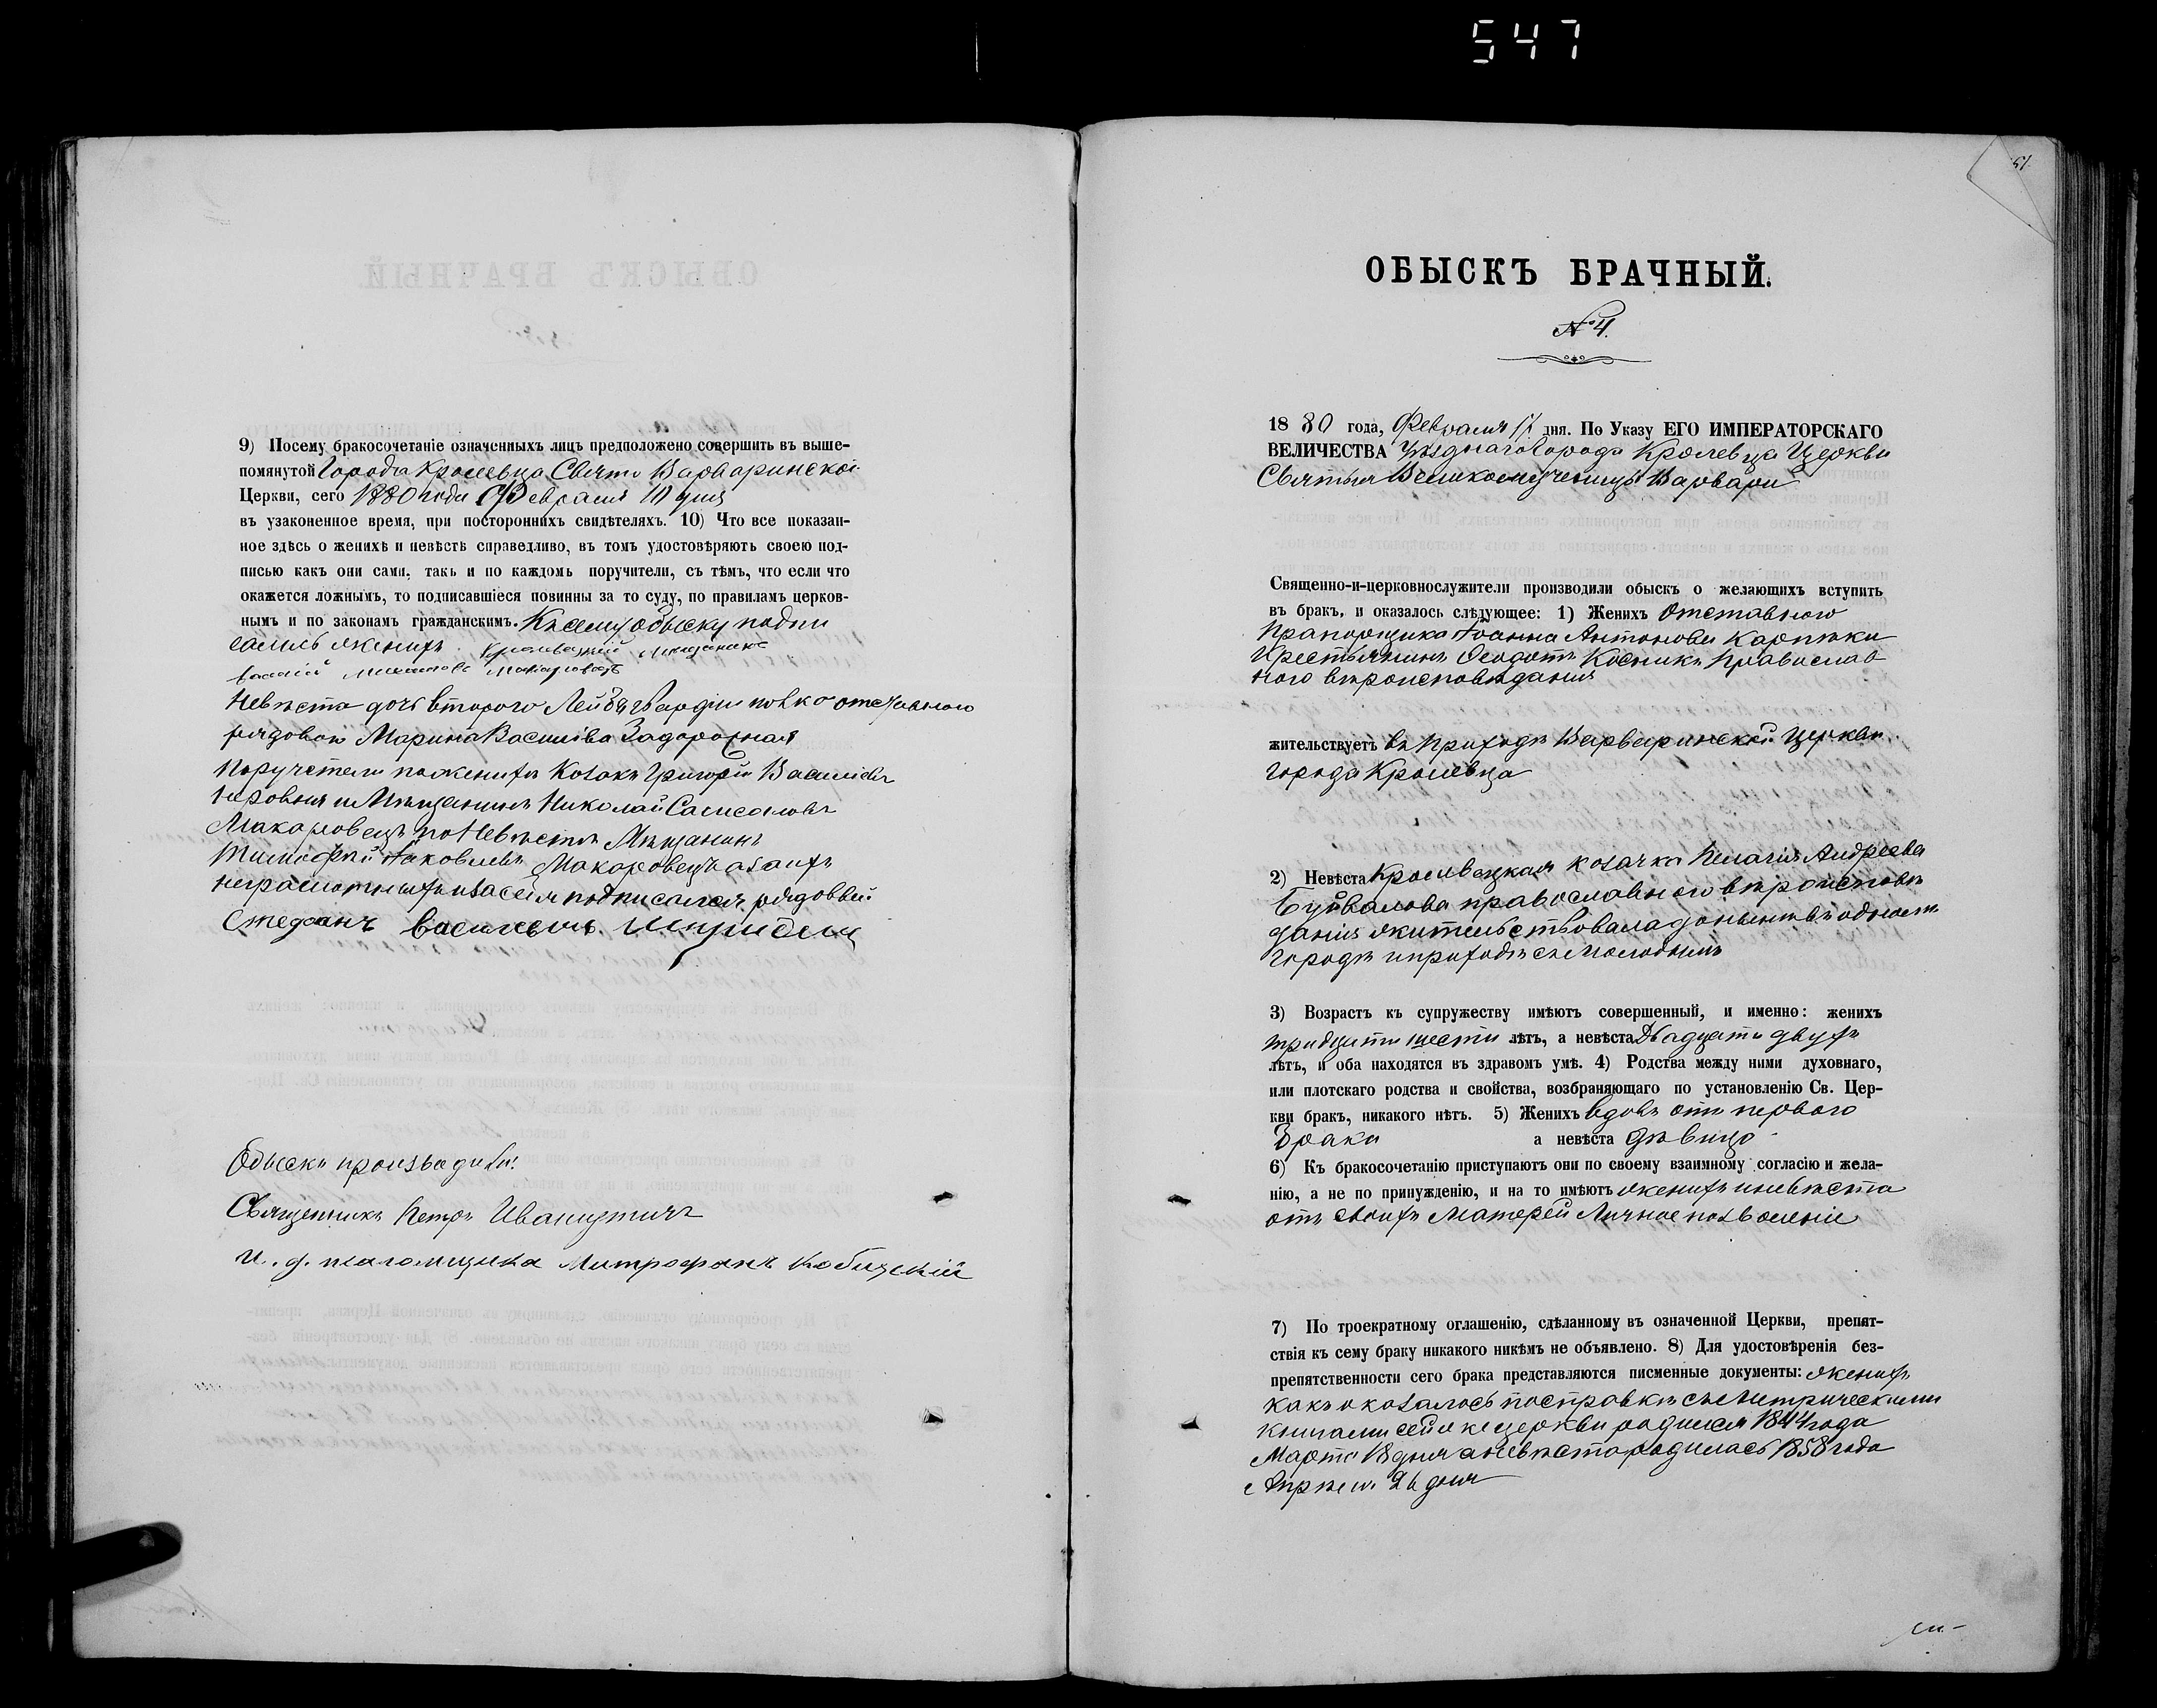 547
9) Посему бракосочетаніе означенныхъ лицъ предположено совершить въ выше-
помянутой Города Кролевца Свято Варваринской
Церкви, сего 1880 года Февраля 10 дня
въ узаконенное время, при постороннихъ свидѣтеляхъ. 10) Что все показан-
ное здѣсь о женихѣ и невѣстѣ справедливо, въ томъ удостовѣряютъ своею под-
писью какъ они сами, такъ и по каждомъ поручители, съ тѣмъ, что если что
окажется ложнымъ, то подписавшіеся повинны за то суду, по правиламъ церков-
нымъ и по законамъ гражданскимъ. Къ сему обыску подпи
сались женихъ Кролевецкій мещанинъ
Макаровецъ
Невѣста дочь второго Лейбъ гвардіи полка отставного
рядовой Марина Василіва Задорожная
Поручители по женихѣ Козакъ Григорій Василіевъ
и Мѣщанинъ Николай Самсоновъ
Макаровецъ по Невѣстѣ Мѣщанинъ
Тимофей Яковлевъ Макаровецъ а за ихъ
неграмотныхъ и за себя подписался рядовый
Стефанъ Васильевъ
Обыскъ производили:
Священникъ Петръ
И. д. псаломщика Митрофанъ
51
ОБЫСКЪ БРАЧНЫЙ.
№ 4.
1880 года, Февраля 17 дня. По Указу ЕГО ИМПЕРАТОРСКАГО
ВЕЛИЧЕСТВА Уѣзднаго Города Кролевца Церкви
Святыя Великомученицы Варвары
Священно-и-церковнослужители производили обыскъ о желающихъ вступить
въ бракъ, и оказалось слѣдующее: 1) Женихъ Отставного
Прапорщика Іоанна Антонова Карпѣки
Крестьянинъ Феодотъ Косникъ Православ
ного вѣроисповѣданія
жительствуетъ въ Приходѣ Варваринской Церкви
города Кролевца
2) Невѣста Кролевецкая козачка Пелагія Андреева
Буйвалова православного вѣроисповѣ
данія жительствовала донынѣ въ одномъ
городѣ и приходѣ съ Молодымъ
3) Возрастъ къ супружеству имѣютъ совершенный, и именно: женихъ
тридцати шести лѣтъ, а невѣста Двадцати двухъ
лѣтъ, и оба находятся въ здравомъ умѣ. 4) Родства между ними духовнаго,
или плотскаго родства и свойства, возбраняющаго по установленію Св. Цер-
кви бракъ, никакого нѣтъ. 5) Женихъ вдовъ отъ первого
брака а невѣста дѣвица
6) Къ бракосочетанію приступаютъ они по своему взаимному согласію и жела-
нію, а не по принужденію, и на то имѣютъ женихъ и невѣста
отъ своихъ Матерей Личное позволеніе
7) По троекратному оглашенію, сдѣланному въ означенной Церкви, препят-
ствія къ сему браку никакого никѣмъ не объявлено. 8) Для удостовѣренія без-
препятственности сего брака представляются писменные документы: женихъ
какъ оказалось по справкѣ съ Метрическими
книгами сей же церкви родился 1844 года
Марта 18 дня а невѣста родилась 1858 года
Апрѣля 26 дня